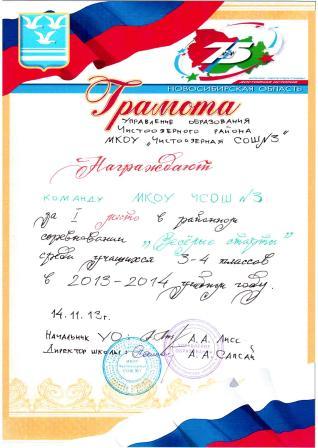 75
НОВОСИБИРСКАЯ ОБЛАСТЬ
Грамота
Управление образования
Чистоозерного района
МКОУ „Чистоозерная СОШ №3"
Награждают
команду МКОУ ЧСОШ №3
за I место в районном
соревновании „Весёлые старты"
среди учащихся 3-4 классов
в 2013-2014 учебном году.
14.11.13г.
Начальник УО: А.А. Лисс
Директор школы: А.А. Сапсай